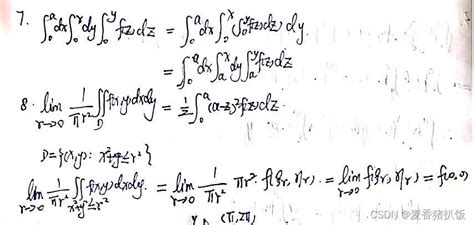 7. ∫₀ᵃdx∫₀ˣdy∫₀ʸf(z)dz = ∫₀ᵃdx∫₀ˣ(∫₀ʸf(z)dz)dy.
= ∫₀ᵃdx∫ₐˣdy∫ₐʸf(z)dz
8. lim r→0 1/πr² ∬_D f(x,y)dxdy = 1/2∫₀ᵃ(a-z)²f(z)dz.
D={(x,y): x²+y²≤r²}
lim r→0 1/πr² ∬_{x²+y²≤r²} f(x,y)dxdy. = lim r→0 1/πr² πr²·f(ξr, ηr). = lim r→0 f(ξr, ηr) = f(0,0)
(π,2π
CSDN @麦香猪扒饭